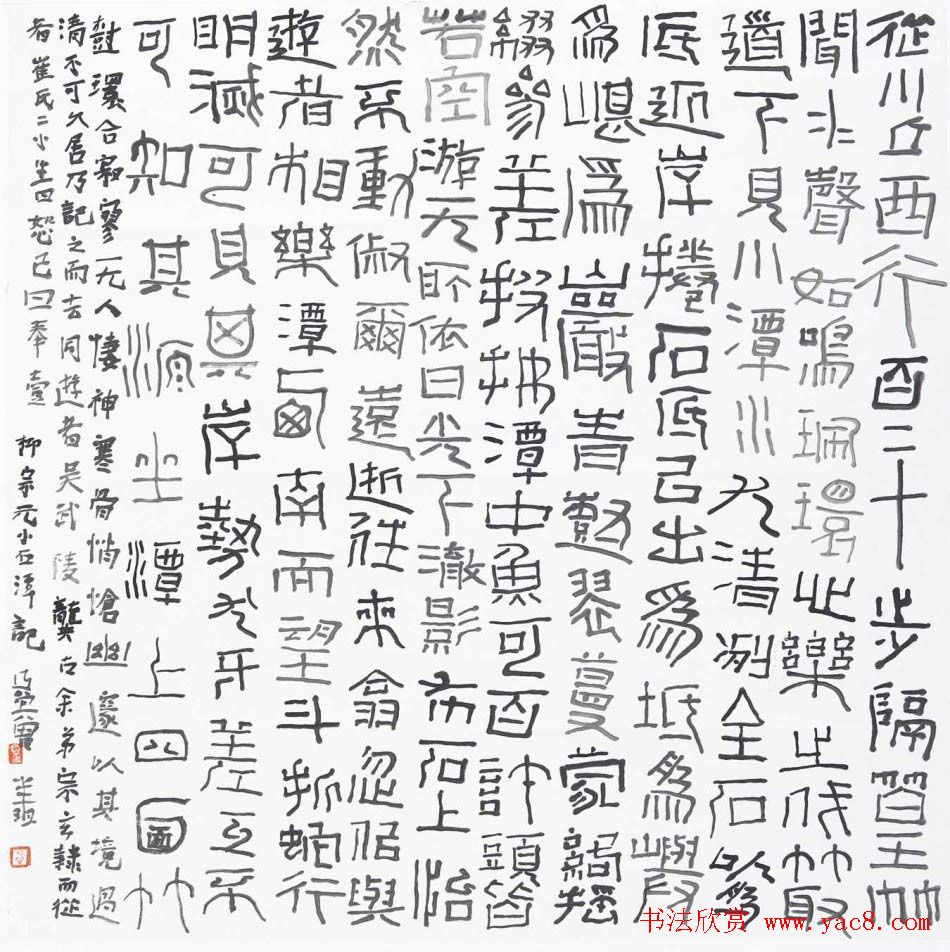 從小丘西行百二十步隔篁竹
聞水聲如鳴珮環心樂之伐竹取
道下見小潭水尤清冽全石以為
底近岸捲石底以出為坻為嶼
為嵁為巖青樹翠蔓蒙絡搖
綴參差披拂潭中魚可百許頭皆
若空游无所依日光下澈影布石上怡
然不動俶爾遠逝往來翕忽似與
遊者相樂潭西南而望斗折蛇行
明滅可見其岸勢犬牙差互不
可知其源坐潭上四面竹
樹環合寂寥无人悽神寒骨悄愴幽邃以其境過
清不可久居乃記之而去同遊者吳武陵龔古余弟宗玄隸而從
者崔氏二小生曰恕己曰奉壹
柳宗元小石潭記
书法欣赏 www.yac8.com